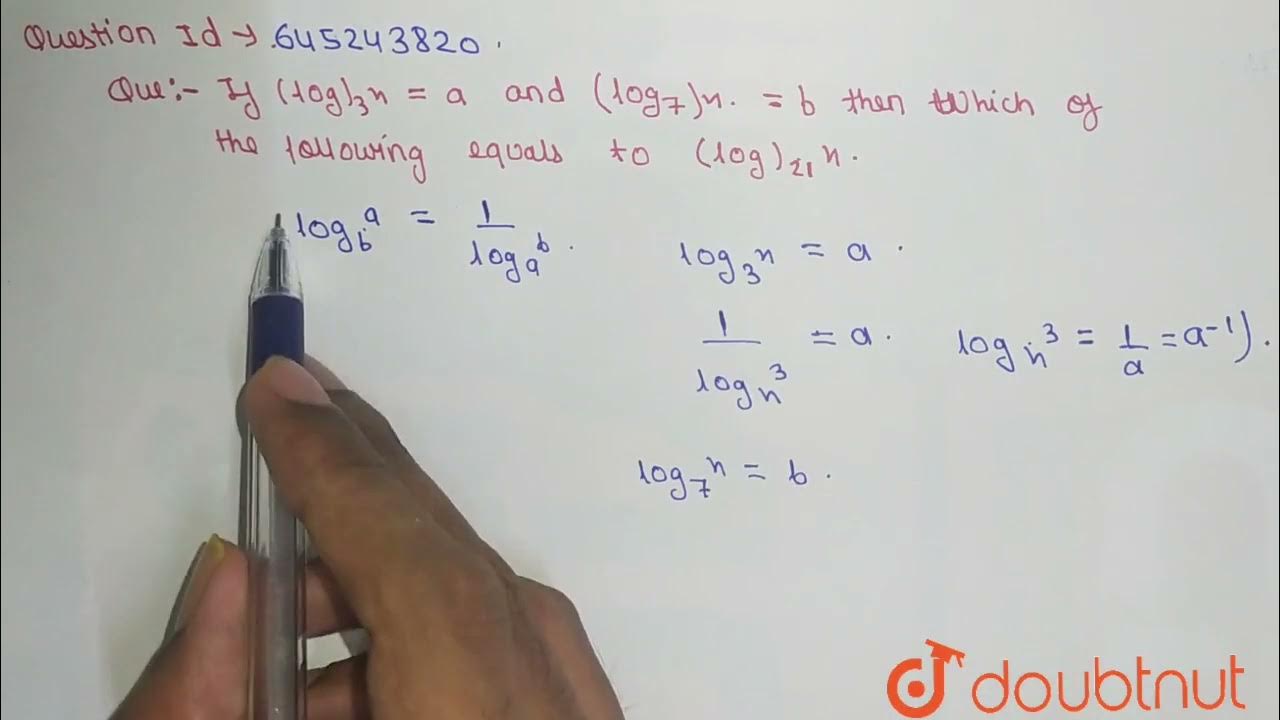 Question Id → .645243820.
Que:- If (log)₃n = a and (log₇)n. = b then Which of
the following equals to (log)₂₁n.
log_b^a = 1/log_a^b.
log₃^n = a.
1/log_n^3 = a. log_n^3 = 1/a = a⁻¹).
log₇^n = b.
doubtnut